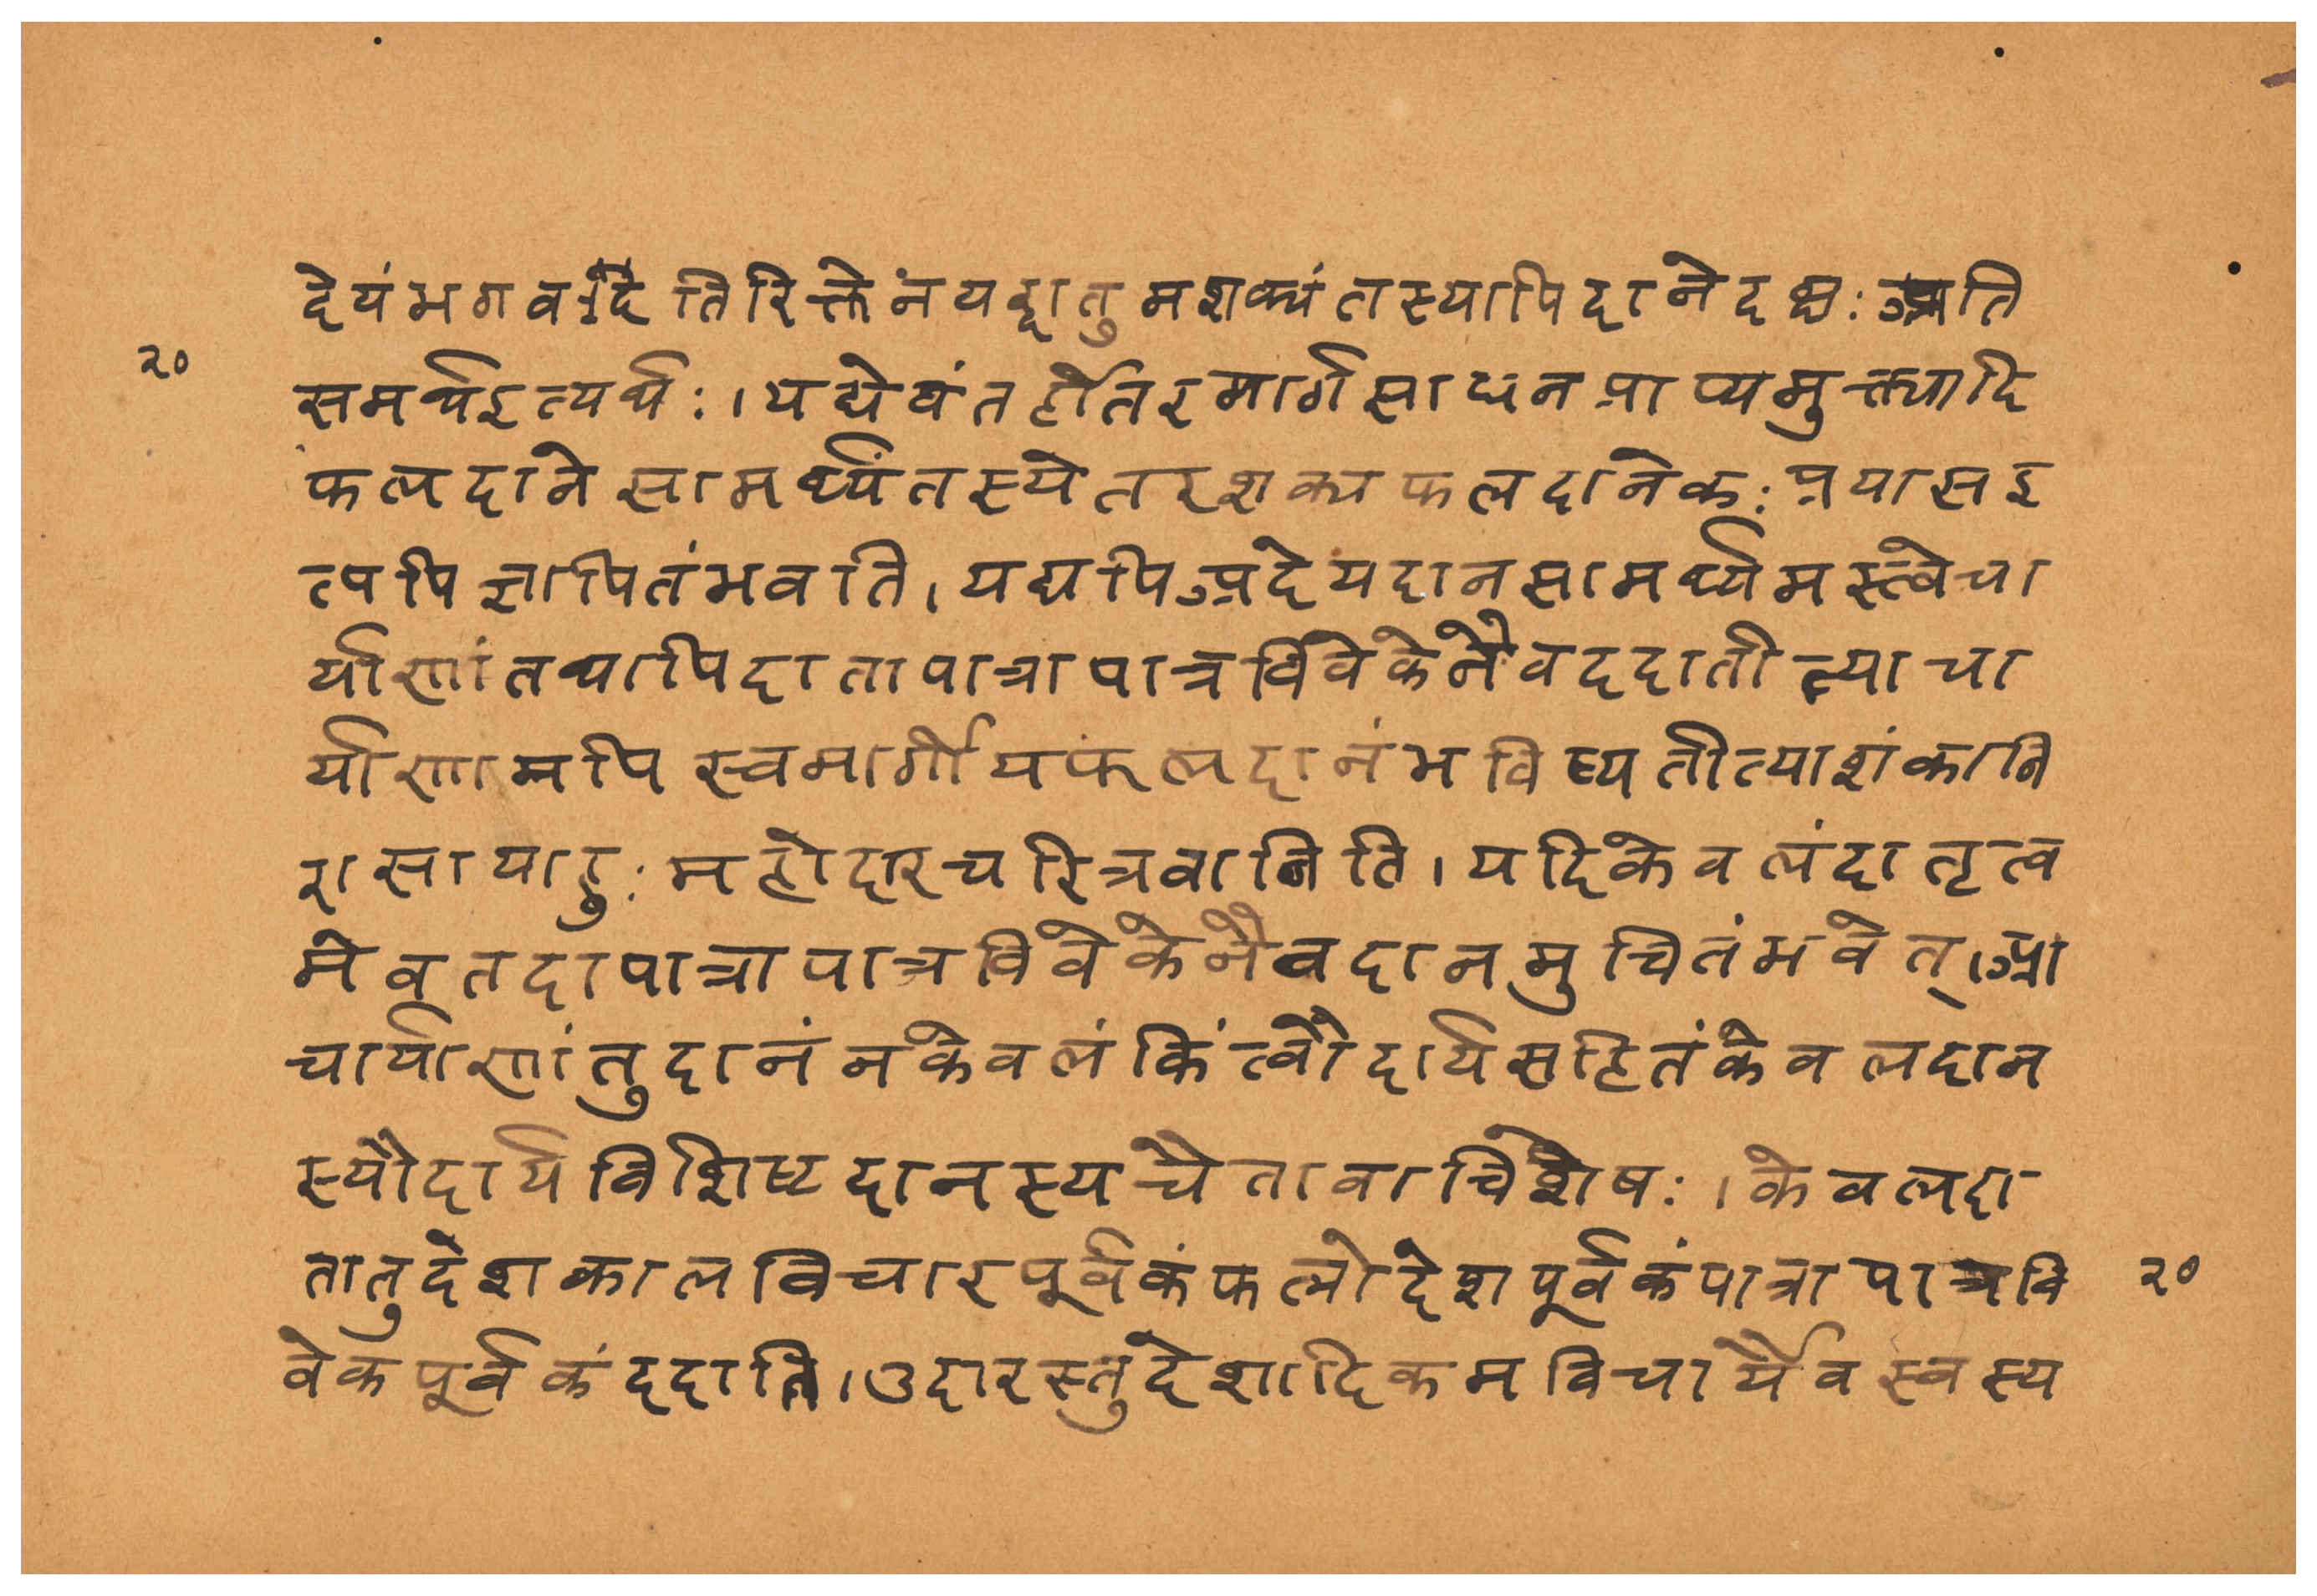 देयंभगवदतिरिक्तेनयद्दातुमशक्यंतस्यापिदानेदक्षः अति
२०
समर्थइत्यर्थः।यद्येवंतर्हीतरमार्गसाधनप्राप्यमुक्त्यादि
फलदानेसामर्थ्यंतस्येतरशक्यफलदानेकःप्रयासइ
त्यपिज्ञापितंभवति।यद्यपिअदेयदानसामर्थ्यमस्त्वेचा
र्याणांतथापिदातापात्रापात्रविवेकेनैवददातीत्याचा
र्याणामपिस्वमार्गीयफलदानंभविष्यतीत्याशंकानि
रासायाहुःमहोदारचरित्रवानिति।यदिकेवलंदातृत्व
मेवतदापात्रापात्रविवेकेनैवदानमुचितंभवेत्।आ
चार्याणांतुदानंनकेवलंकिंत्वौदार्यसहितंकेवलदान
स्यौदार्यविशिष्टदानस्यचैतावान्विशेषः।केवलदा
तातुदेशकालविचारपूर्वकंफलोद्देशपूर्वकंपात्रापात्रवि
२०
वेकपूर्वकंददाति।उदारस्तुदेशादिकमविचार्यैवस्वस्य